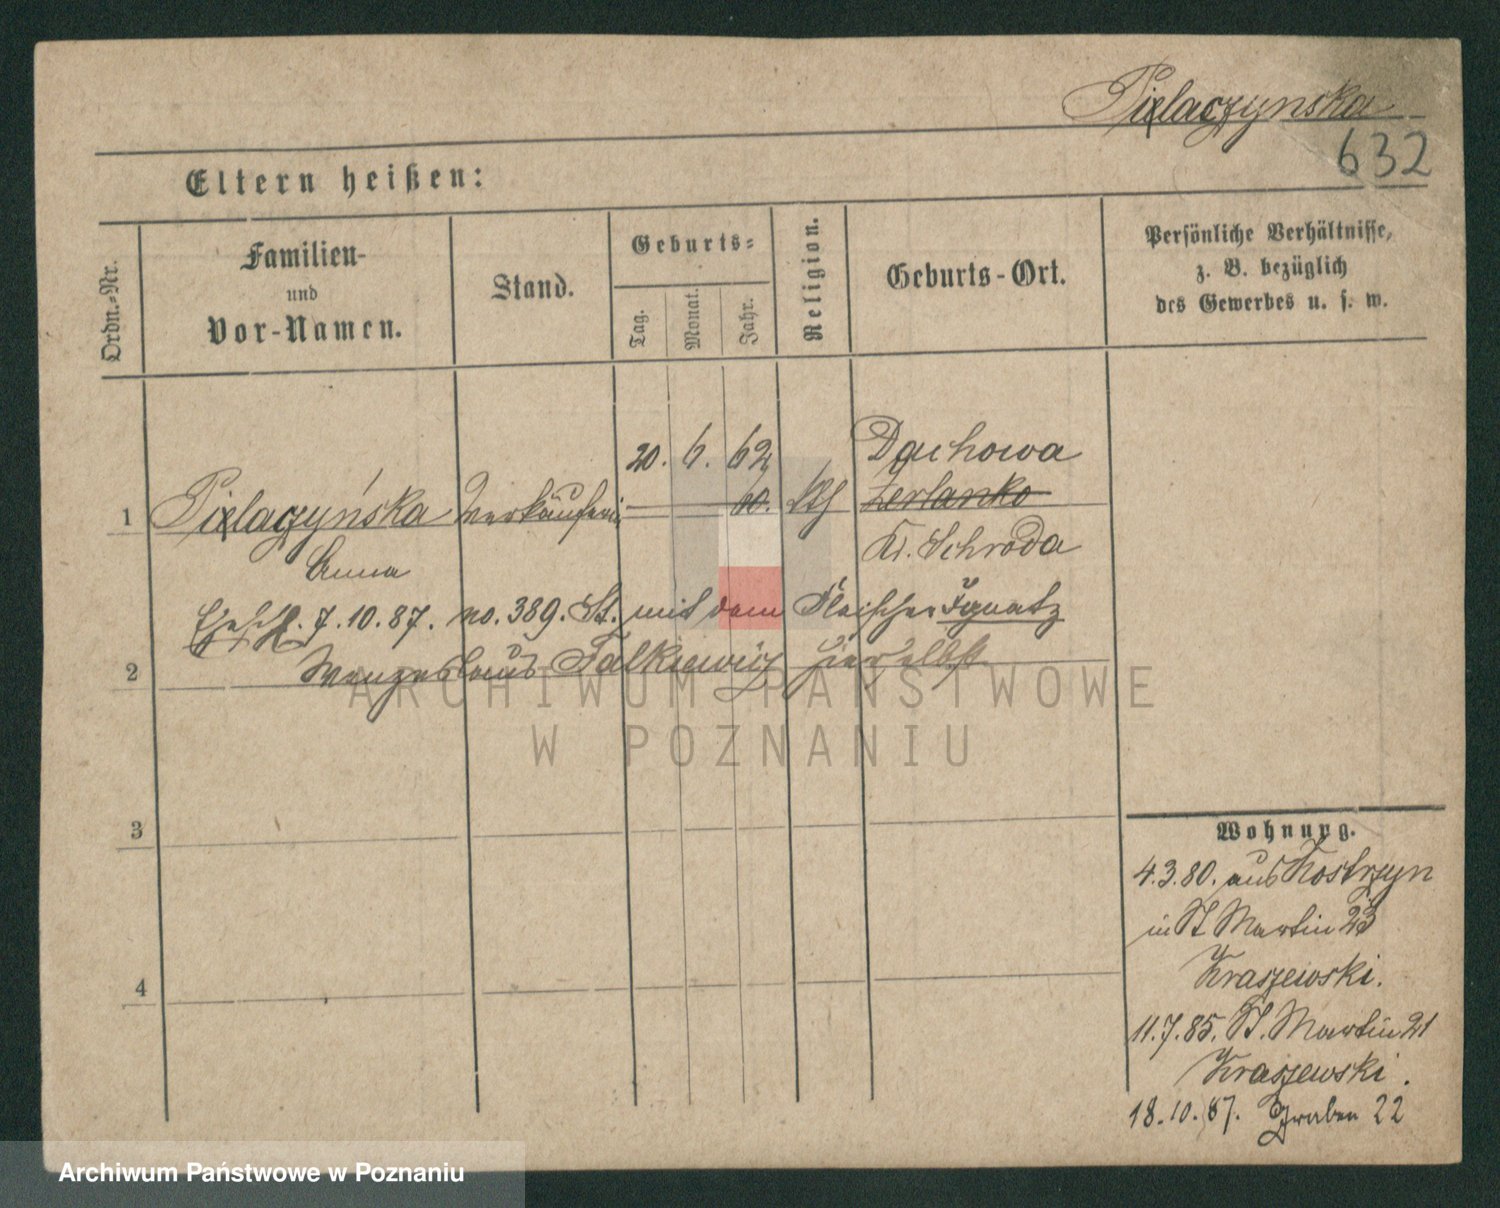 Pielaczynska
632
Eltern heißen:
Ordn.-Nr.
Familien-
und
Vor-Namen.
Stand.
Geburts-
Tag.
Monat.
Jahr.
Religion.
Geburts-Ort.
Persönliche Verhältnisse,
z. B. bezüglich
des Gewerbes u. s. w.
20. 6. 62 Dachowa
1 Pielaczyńska Verkäuferin 60. kth Zerlanko
Anna Kr. Schroda
Eheschl. 7.10.87. no. 389. St. mit dem Fleischer Ignatz
2 Wenzeslaus Falkiewicz hierselbst
ARCHIWUM PAŃSTWOWE
W POZNANIU
3
4
Wohnung.
4.3.80. aus Kostrzyn
in St Martin 23
Kraszewski.
11.7.85. St. Martin 21
Kraszewski.
18.10.87. Graben 22
Archiwum Państwowe w Poznaniu